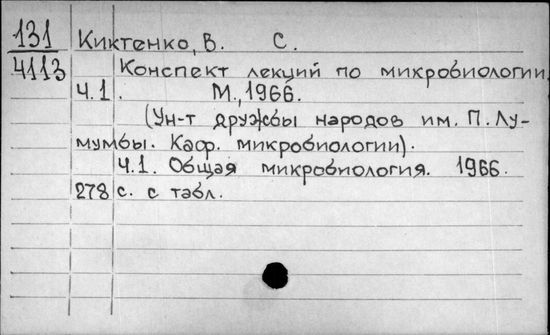 131 Киктенко, В. С.
4113 Конспект лекций по микробиологии
Ч.1. М., 1966.
(Ун-т дружбы народов им. П. Лу-
мумбы. Каф. микробиологии).
Ч.1. Общая микробиология. 1966.
278 с. с табл.